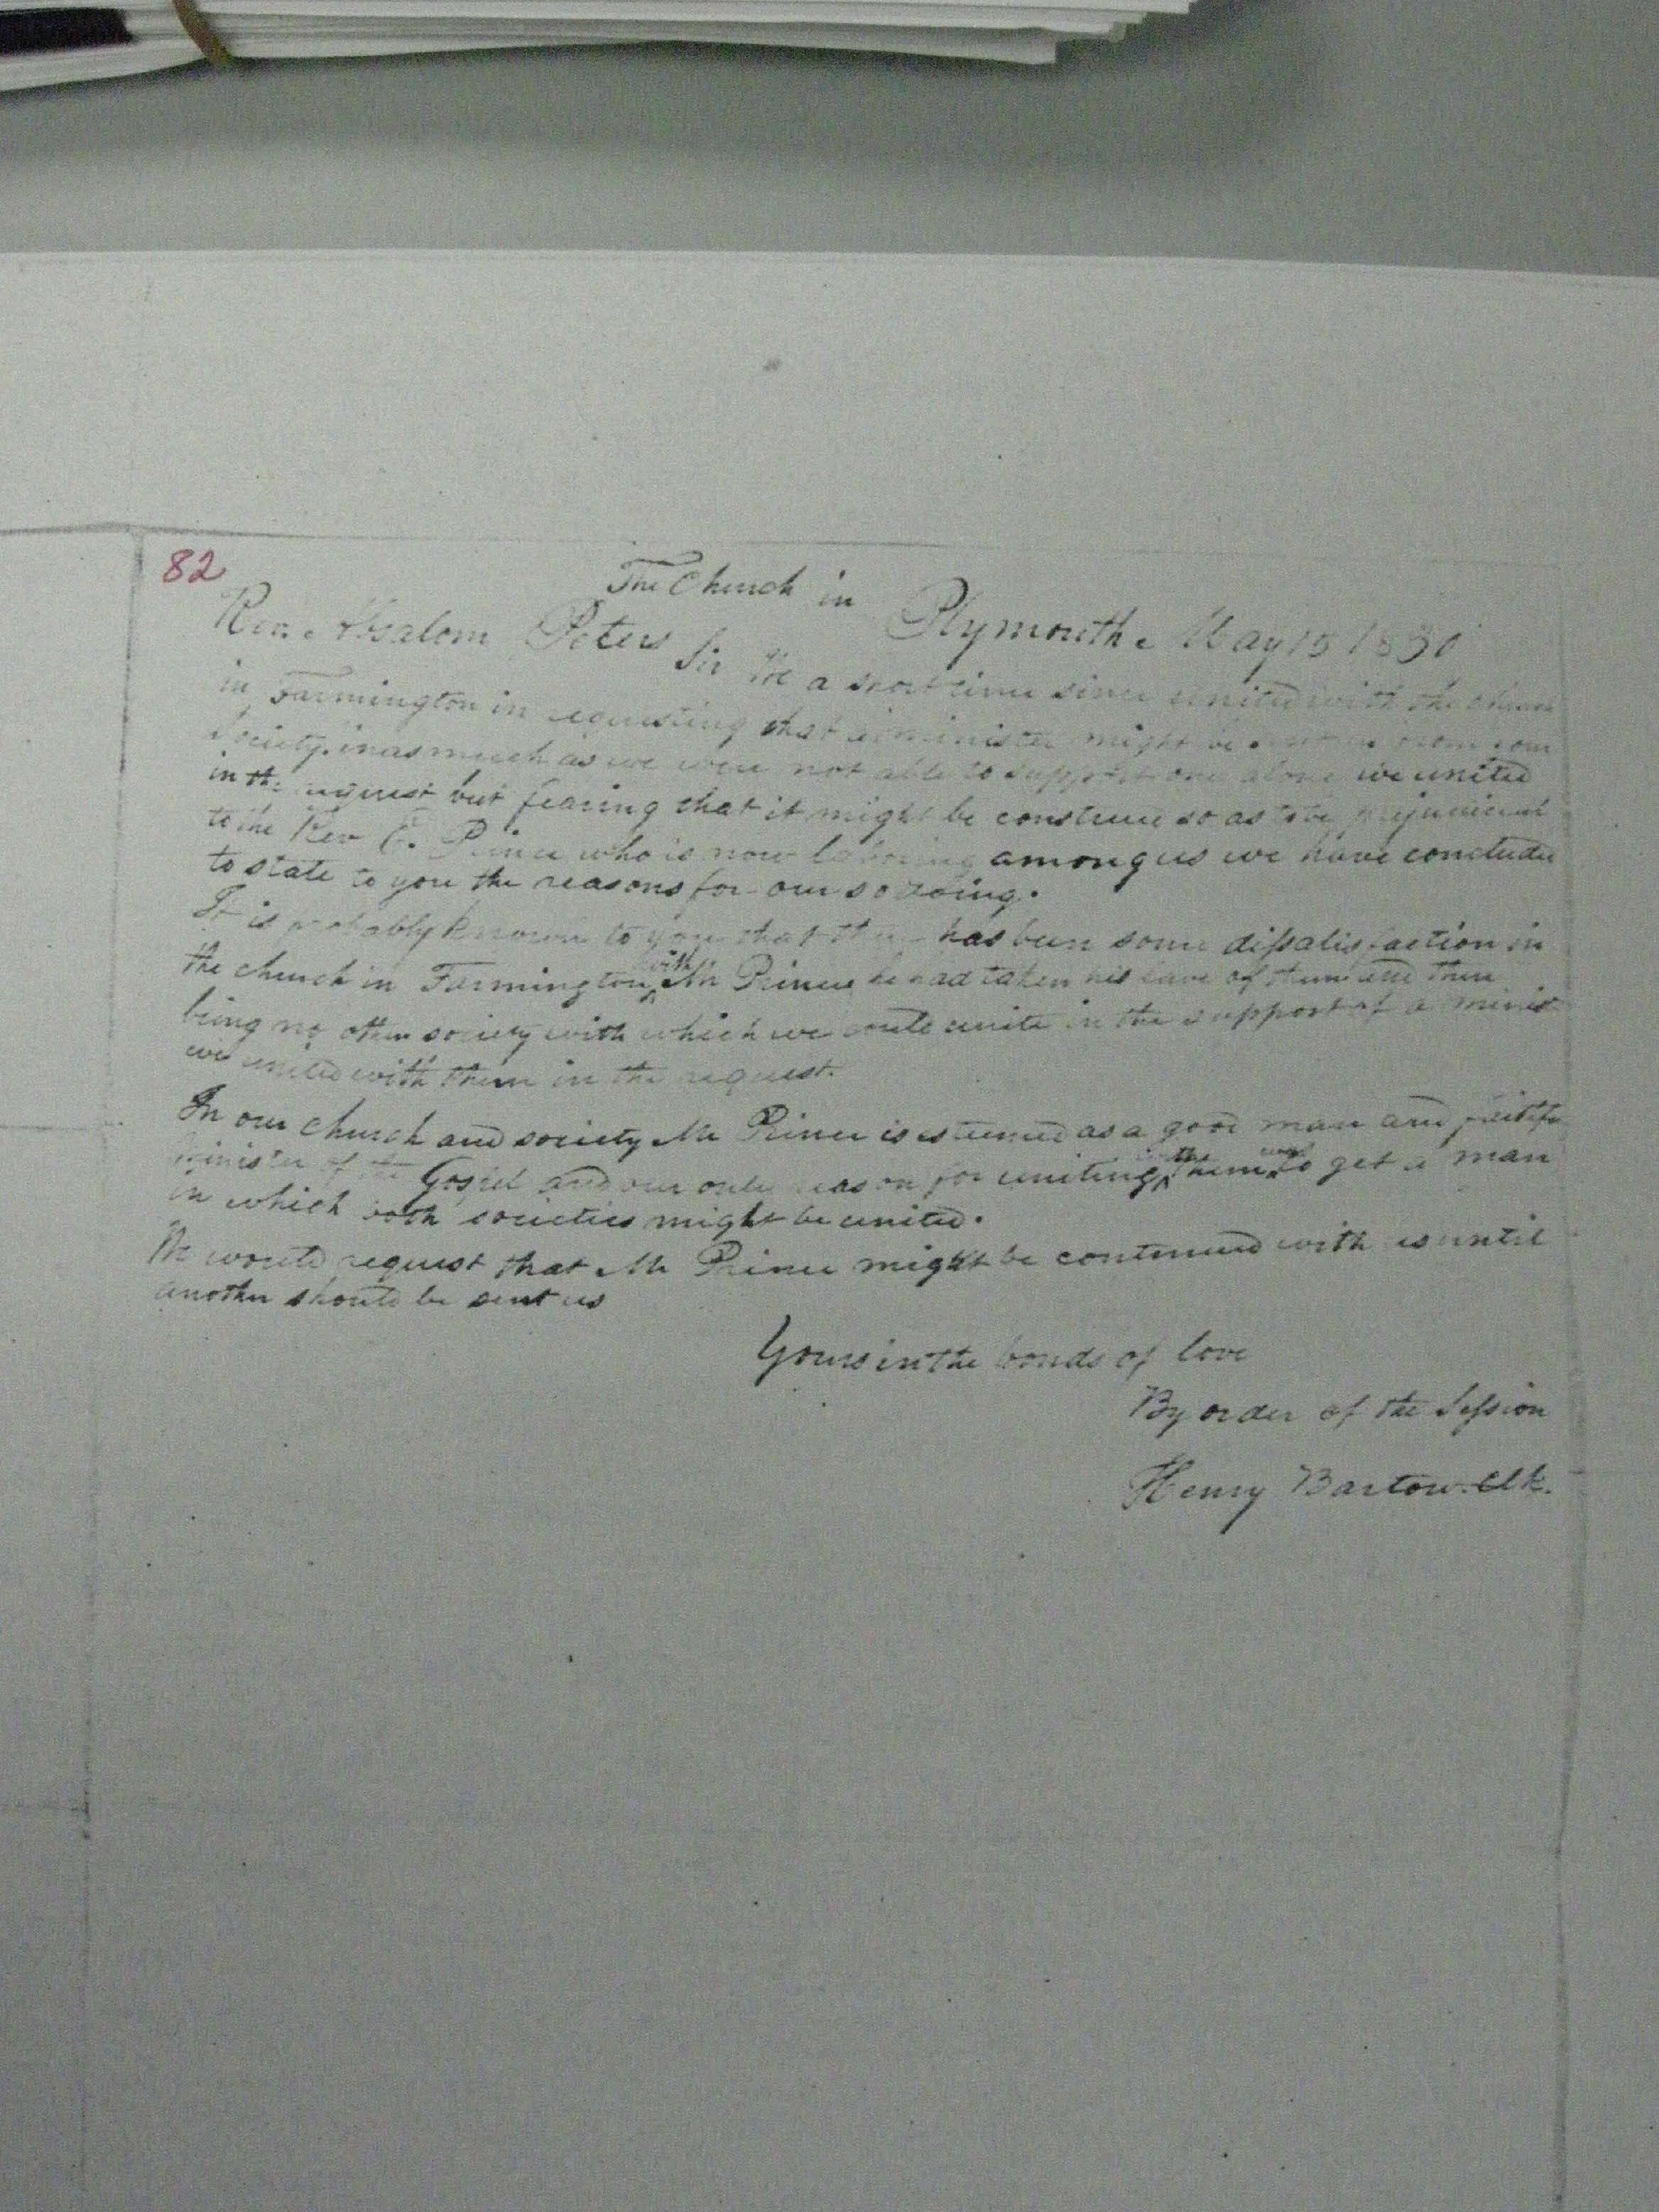 82
The Church in Plymouth. May 15 1830
Rev. Absalom Peters Sir We a short time since united with the church
in Farmington in requesting that a minister might be from your
Society. inasmuch as we were not able to support one alone we united
in the request but fearing that it might be construed so as to be prejudicial
to the Rev Prince who is now laboring among us we have concluded
to state to you the reasons for our so doing.
It is probably known to you that there has been some dissatisfaction in
the church in Farmington with Mr Prince he had taken his leave of them and there
being no other society with which we could unite in the support of a minist
we united with them in the request.
In our church and society Mr Prince is esteemed as a good man and faithfu
minister of the Gospel and our only reason for uniting them was to get a man
in which both societies might be united.
We would request that Mr Prince might be continued with us until
another should be sent us
Yours in the bonds of love
By order of the Session
Henry Bartow. Clk.